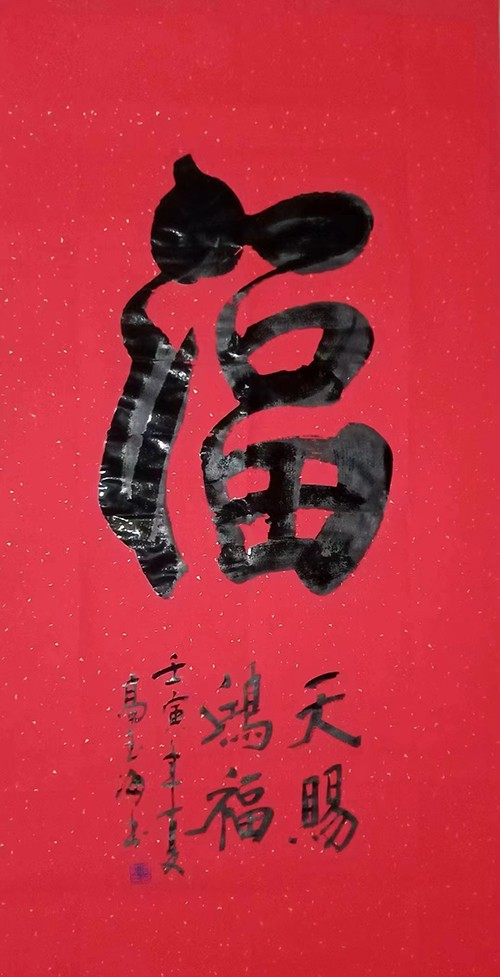 福
天賜
鴻福
壬寅年夏
高玉海书